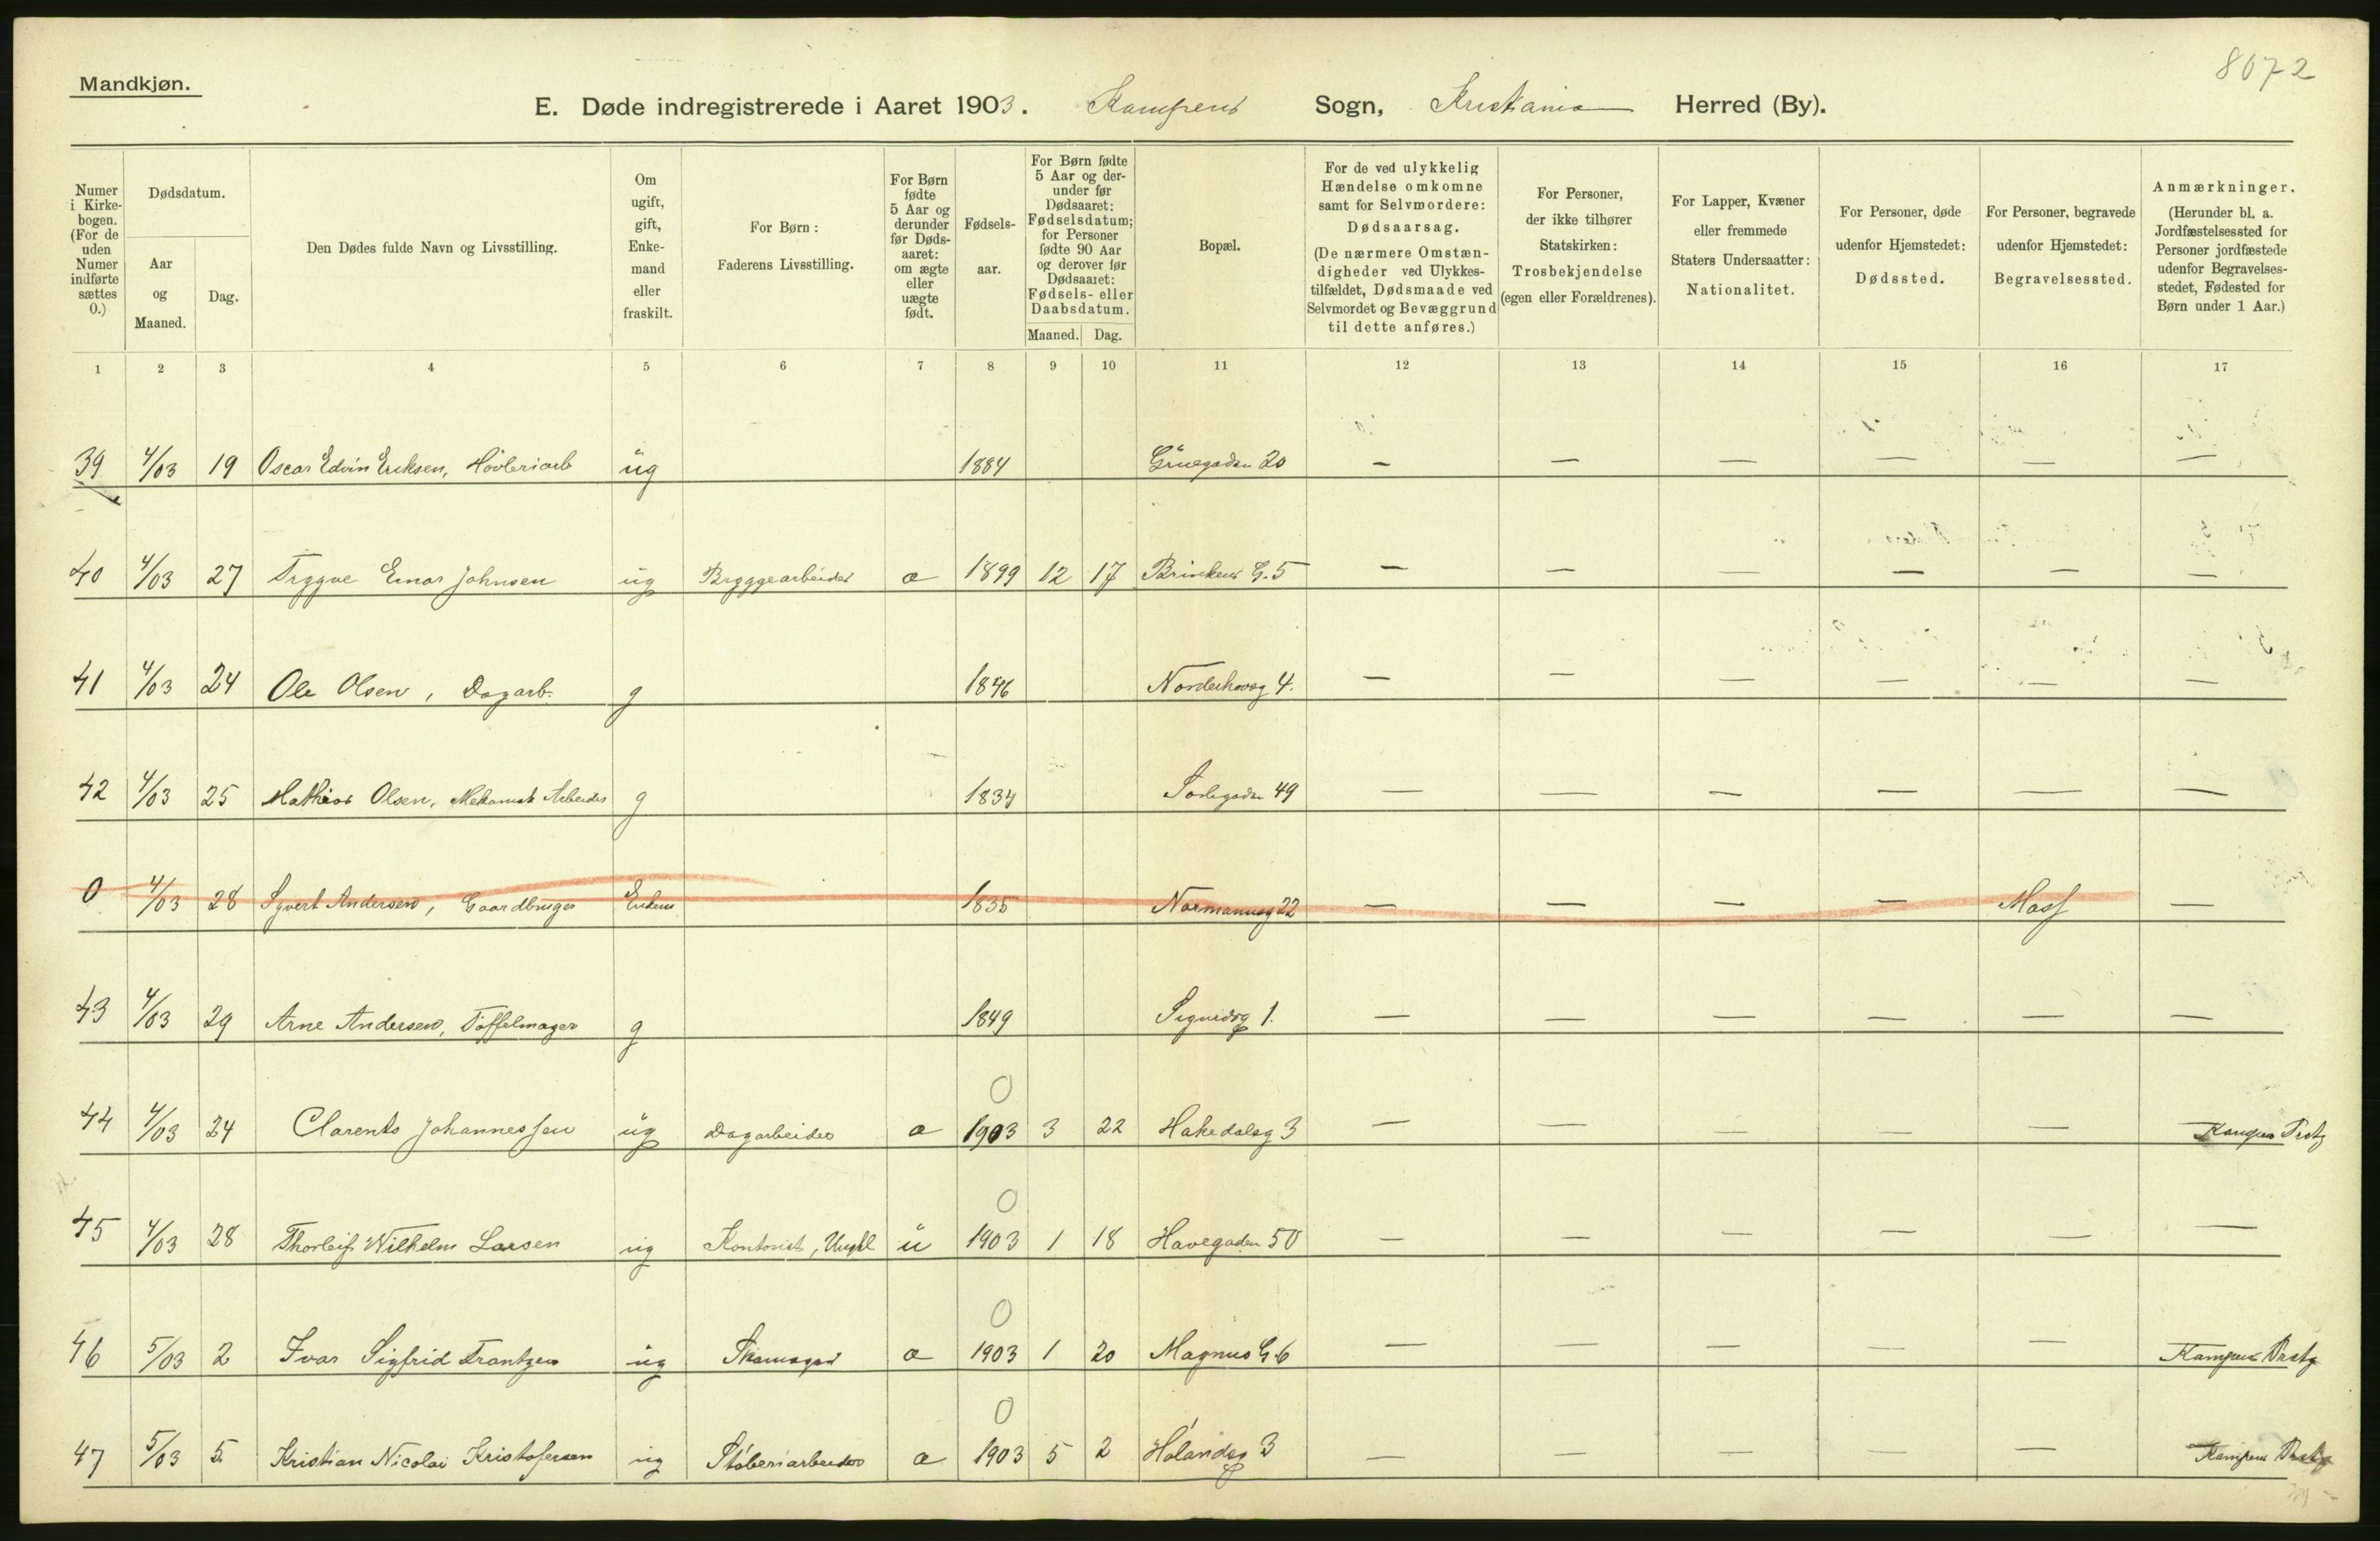 8072
Mandkjøn.
E. Døde indregistrerede i Aaret 1903. Kampens Sogn, Kristiania Herred (By).
Numer i Kirkebogen. (For de uden Numer indførte sættes 0.)
Dødsdatum.
Aar og Maaned.
Dag.
Den Dødes fulde Navn og Livsstilling.
Om ugift, gift, Enkemand eller fraskilt.
For Børn: Faderens Livsstilling.
For Børn fødte 5 Aar og derunder før Dødsaaret: om ægte eller uægte født.
Fødselsaar.
For Børn fødte 5 Aar og derunder før Dødsaaret: Fødselsdatum; for Personer fødte 90 Aar og derover før Dødsaaret: Fødsels- eller Daabsdatum.
Maaned. Dag.
Bopæl.
For de ved ulykkelig Hændelse omkomne samt for Selvmordere: Dødsaarsag. (De nærmere Omstændigheder ved Ulykkestilfældet, Dødsmaade ved Selvmordet og Bevæggrund til dette anføres.)
For Personer, der ikke tilhører Statskirken: Trosbekjendelse (egen eller Forældrenes).
For Lapper, Kvæner eller fremmede Staters Undersaatter: Nationalitet.
For Personer, døde udenfor Hjemstedet: Dødssted.
For Personer, begravede udenfor Hjemstedet: Begravelsessted.
Anmærkninger. (Herunder bl. a. Jordfæstelsessted for Personer jordfæstede udenfor Begravelsesstedet, Fødested for Børn under 1 Aar.)
1 2 3 4 5 6 7 8 9 10 11 12 13 14 15 16 17
39 4/03 19 Oscar Edvin Eriksen, Høvleriarb ug 1884 Grüegaden 20 — — — — — —
40 4/03 27 Trygve Einar Johnsen ug Bryggearbeider a 1899 12 17 Brinkens G. 5 — — — — — —
41 4/03 24 Ole Olsen, Dagarb. g 1846 Norderhovsg 4. — — — — — —
42 4/03 25 Mathias Olsen, Mekanisk Arbeider g 1834 Sørligaden 49 — — — — — —
0 4/03 28 Syvert Andersen, Gaardbruger Enkem 1835 Normannsg 22 — — — — Moss —
43 4/03 29 Arne Andersen, Tøffelmager g 1849 Sigurdsg 1. — — — — — —
0
44 4/03 24 Clarents Johannessen ug Dagarbeider a 1903 3 22 Hakedalsg 3 — — — — — Kampens Prstg
0
45 4/03 28 Thorleif Wilhelm Larsen ug Kontorist, Ungkl u 1903 1 18 Havegaden 50 — — — — — —
0
46 5/03 2 Ivar Sigfrid Frantzen ug Skomager a 1903 1 20 Magnus G. 6 — — — — — Kampens Prstg
0
47 5/03 5 Kristian Nicolai Kristofersen ug Støberiarbeider a 1903 5 2 Hølandsg 3 — — — — — Kampens Prstg